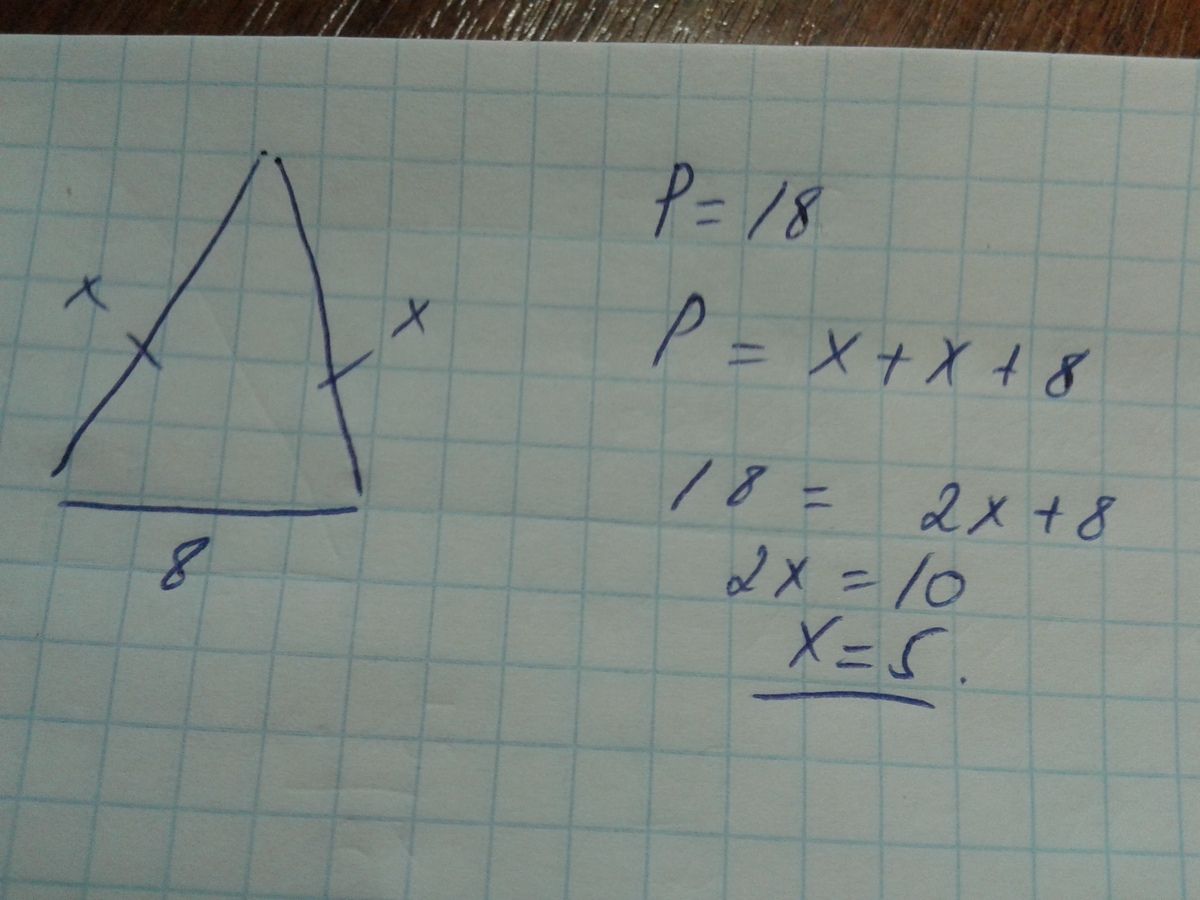 x
x
8
P = 18
P = x + x + 8
18 = 2x + 8
2x = 10
x = 5.